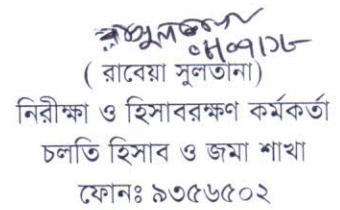 ( রাবেয়া সুলতানা)
নিরীক্ষা ও হিসাবরক্ষণ কর্মকর্তা
চলতি হিসাব ও জমা শাখা
ফোনঃ ৯৩৫৬৫০২